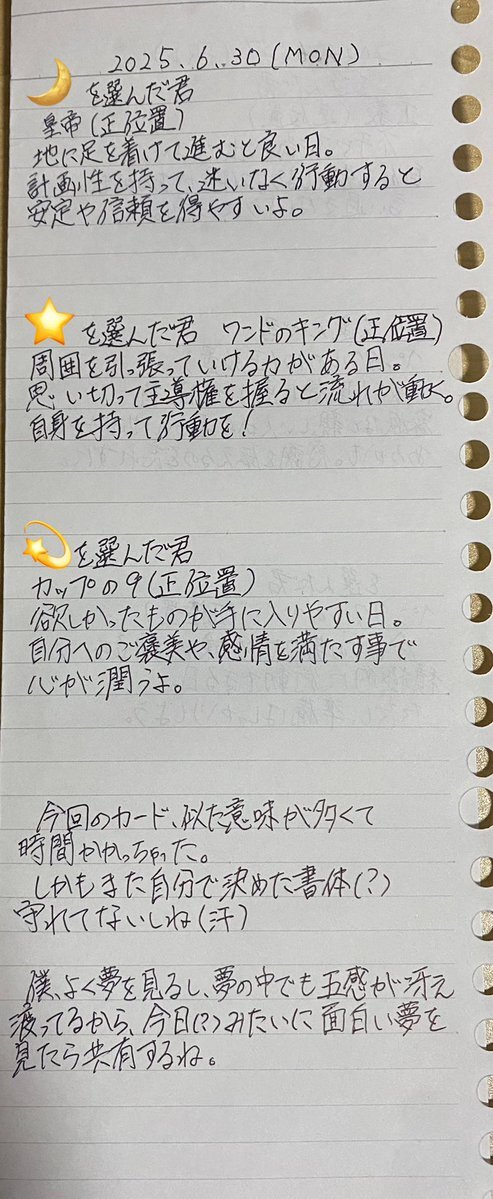 2025.6.30(MON)
🌙を選んだ君
皇帝(正位置)
地に足を着けて進むと良い日。
計画性を持って、迷いなく行動すると
安定や信頼を得やすいよ。
⭐を選んだ君 ワンドのキング(正位置)
周囲を引っ張っていける力がある日。
思い切って主導権を握ると流れが動く。
自身を持って行動を!
💫を選んだ君
カップの9(正位置)
欲しかったものが手に入りやすい日。
自分へのご褒美や、感情を満たす事で
心が潤うよ。
今回のカード、似た意味が多くて
時間かかっちゃった。
しかもまた自分で決めた書体(?)
守れてないしね(汗)
僕、よく夢を見るし、夢の中でも五感が冴え
渡ってるから、今日(?)みたいに面白い夢を
見たら共有するね。